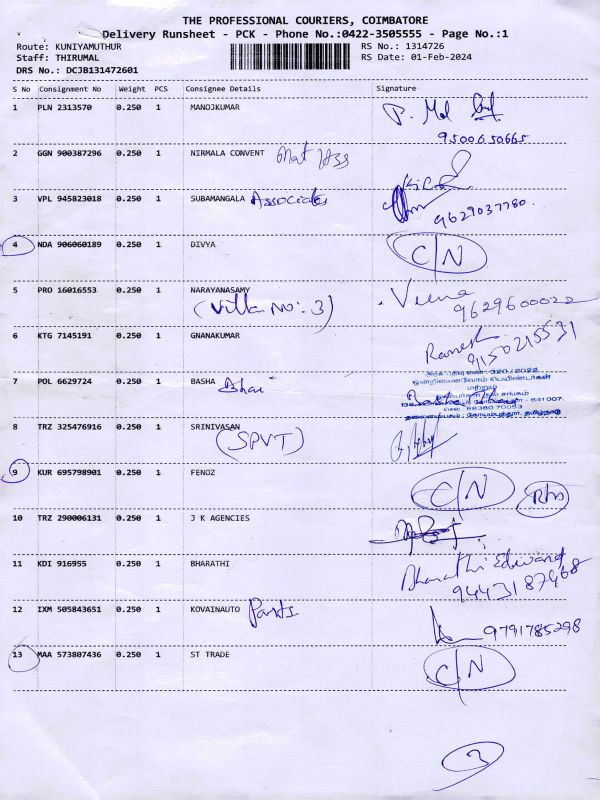 THE PROFESSIONAL COURIERS, COIMBATORE
Delivery Runsheet - PCK - Phone No.:0422-3505555 - Page No.:1
Route: KUNIYAMUTHUR RS No.: 1314726
Staff: THIRUMAL RS Date: 01-Feb-2024
DRS No.: DCJB131472601
S No Consignment No Weight PCS Consignee Details Signature
1 PLN 2313570 0.250 1 MANOJKUMAR
9500650665
2 GGN 900387296 0.250 1 NIRMALA CONVENT Mat Hss
3 VPL 945823018 0.250 1 SUBAMANGALA Associates
9629037780.
4 NDA 906060189 0.250 1 DIVYA C/N
5 PRO 16016553 0.250 1 NARAYANASAMY Veena
(Villa No: 3) 9629600022
6 KTG 7145191 0.250 1 GNANAKUMAR Ramesh
9150215531
7 POL 6629724 0.250 1 BASHA Bhai
8 TRZ 325476916 0.250 1 SRINIVASAN
(SPVT)
9 KUR 695798901 0.250 1 FENOZ C/N
10 TRZ 290006131 0.250 1 J K AGENCIES
11 KDI 916955 0.250 1 BHARATHI Bharathi Edward
9443187468
12 IXM 505843651 0.250 1 KOVAINAUTO Parts
9791785298
13 MAA 573807436 0.250 1 ST TRADE C/N
3